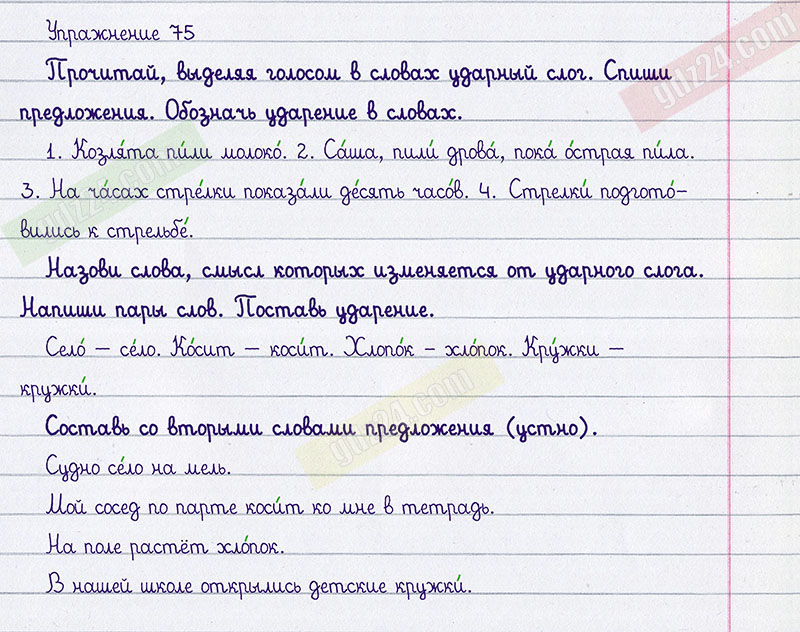 Упражнение 75
Прочитай, выделяя голосом в словах ударный слог. Спиши
предложения. Обозначь ударение в словах.
1. Козля́та пи́ли молоко́. 2. Са́ша, пили́ дрова́, пока́ о́страя пи́ла.
3. На ча́сах стре́лки показа́ли де́сять часо́в. 4. Стрелки́ подгото́-
вились к стрельбе́.
Назови слова, смысл которых изменяется от ударного слога.
Напиши пары слов. Поставь ударение.
Село́ – се́ло. Ко́сит – коси́т. Хлопо́к – хло́пок. Кру́жки –
кружки́.
Составь со вторыми словами предложения (устно).
Судно се́ло на мель.
Мой сосед по парте коси́т ко мне в тетрадь.
На поле растёт хло́пок.
В нашей школе открылись детские кружки́.
gdz24.com
gdz24.com
gdz24.com